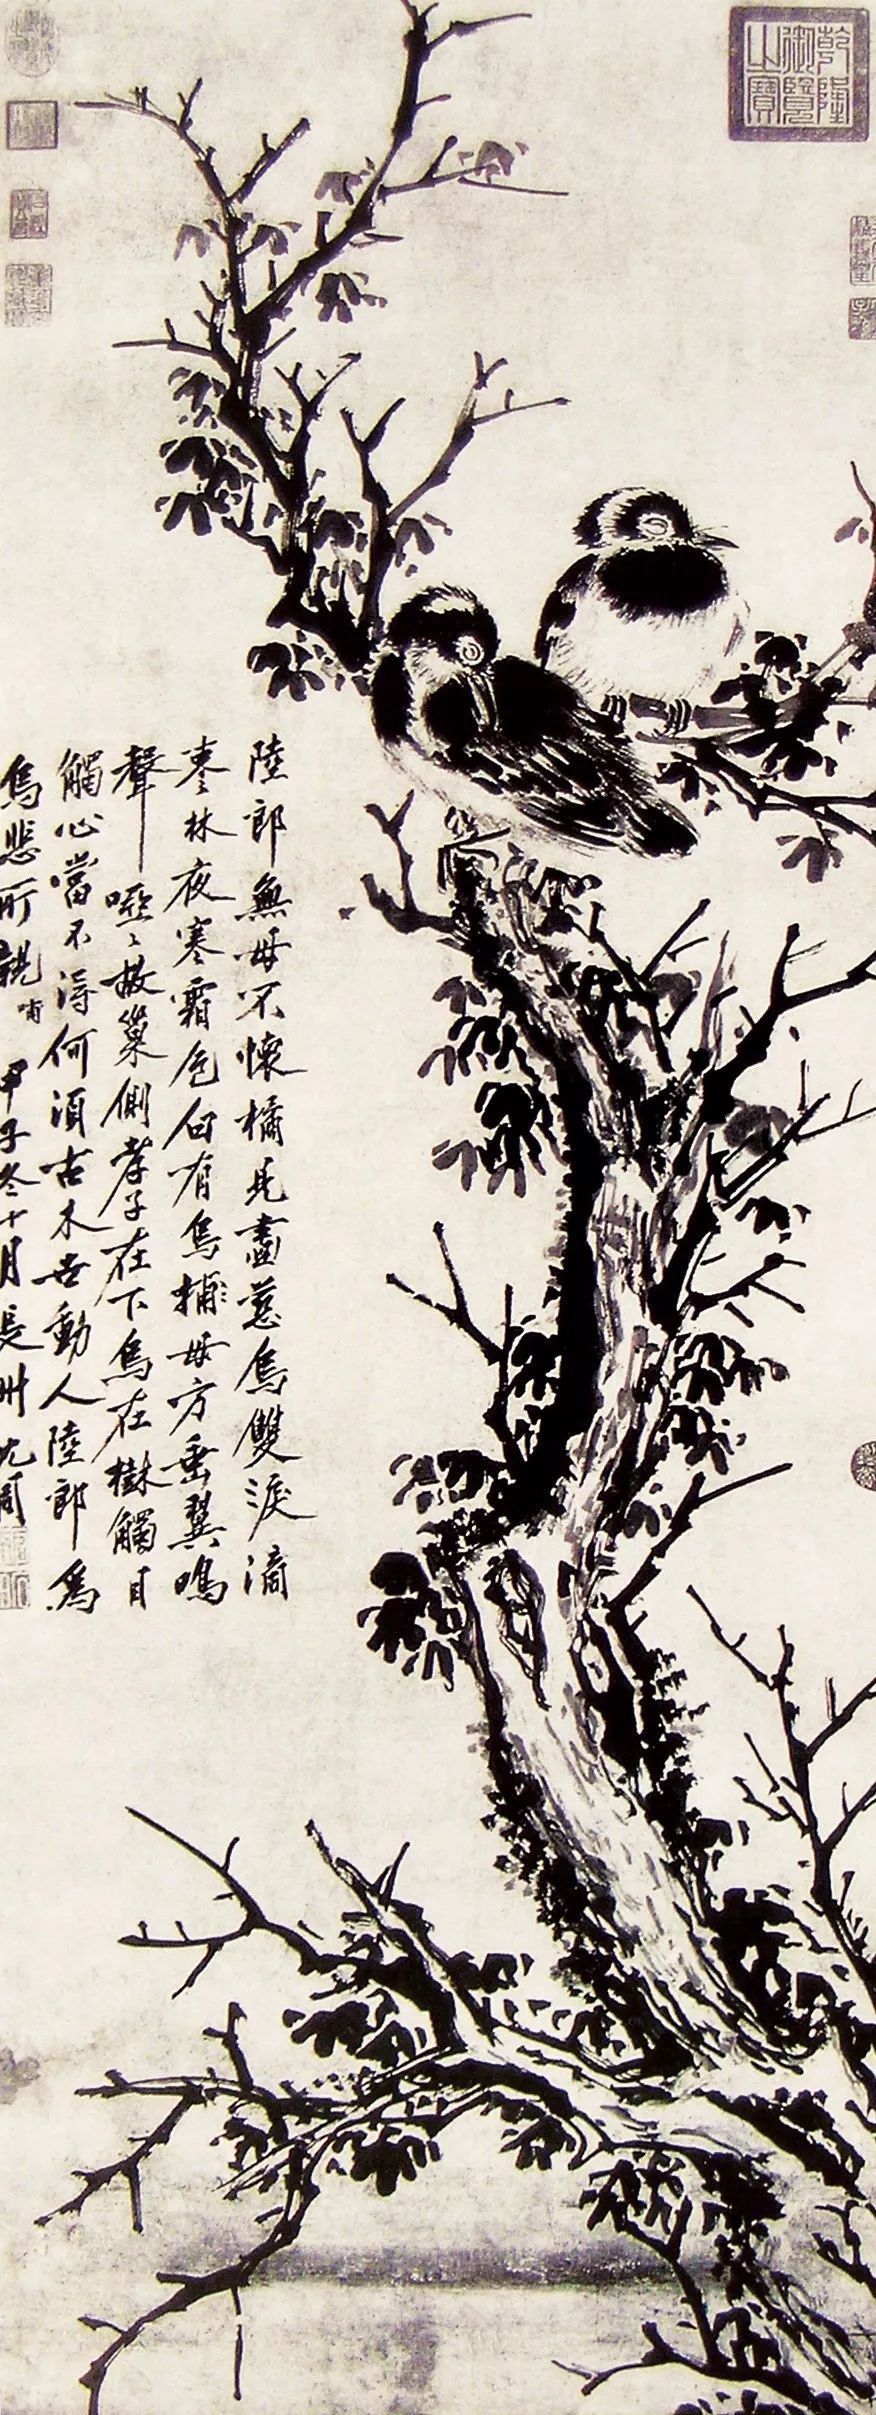 乾隆
御覽
之寶
陸郎無母不懷橘見畫慈烏雙淚滴
枣林夜寒霜色白有烏捕母方垂翼鳴
聲啞〻故巢側孝子在下烏在樹觸目
觸心當不得何須古木動人陸郎為
烏悲所親哺甲子冬十月長州沈周